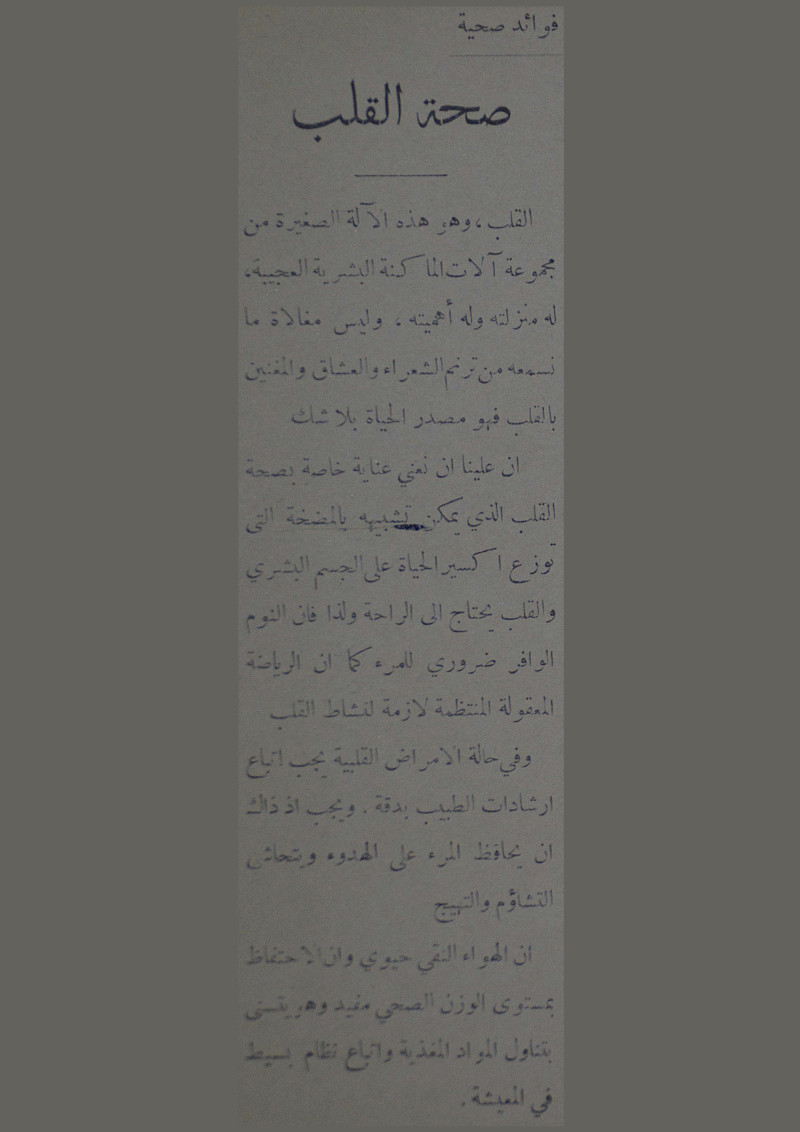 فوائد صحية
صحة القلب
القلب ، وهو هذه الآلة الصغيرة من
مجموعة آلات الماكنة البشرية العجيبة ،
له منزلته وله أهميته ، وليس مغالاة ما
نسمعه من ترنم الشعراء والعشاق والمغنين
بالقلب فهو مصدر الحياة بلا شك
ان علينا ان نعني عناية خاصة بصحة
القلب الذي يمكن تشبيهه بالمضخة التى
توزع اكسير الحياة على الجسم البشري
والقلب يحتاج الى الراحة ولذا فان النوم
الوافر ضروري للمرء كما ان الرياضة
المعقولة المنتظمة لازمة لنشاط القلب
وفي حالة الامراض القلبية يجب اتباع
ارشادات الطبيب بدقة . ويجب اذ ذاك
ان يحافظ المرء على الهدوء ويتحاشى
التشاؤم والتهيج
ان الهواء النقي حيوي وان الاحتفاظ
بمستوى الوزن الصحي مفيد وهو يتسنى
بتناول المواد المغذية واتباع نظام بسيط
في المعيشة .